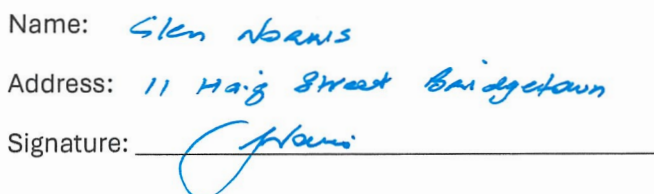 Name: Glen Norris
Address: 11 Haig Street Bridgetown
Signature: